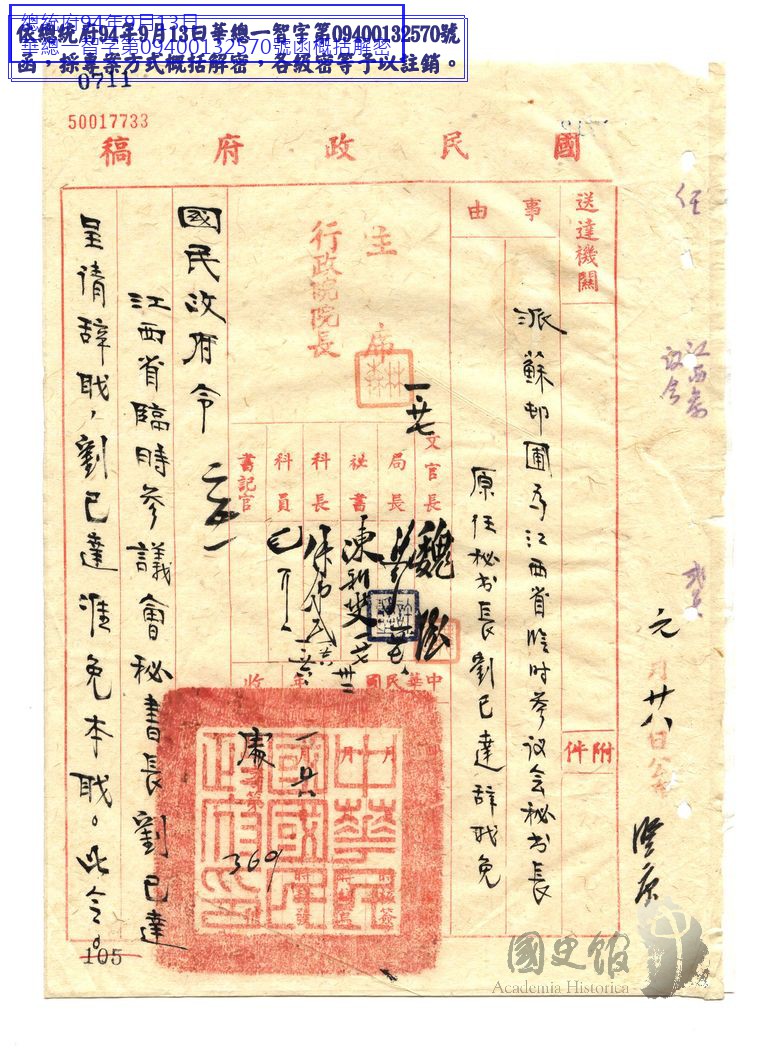 總統府94年9月13日
華總一智字第09400132570號函概括解密
依總統府94年9月13日華總一智字第09400132570號
函，採專案方式概括解密，各級密等予以註銷。
0711
50017733
國民政府稿
送達機關
附件
事由
派蘇邨圃為江西省臨时參议会秘书長
原任秘书長劉已達辞职免
主席
行政院院長
文官長
局長
祕書
科長
科員
書記官
魏
中華民國
年
收
中華民國國民政府印
369
國民政府令
江西省臨時參議會秘書長劉已達
呈請辞职，劉已達准免本职。此令。
元月廿八日
江西省
议会
105
國史館
Academia Historica